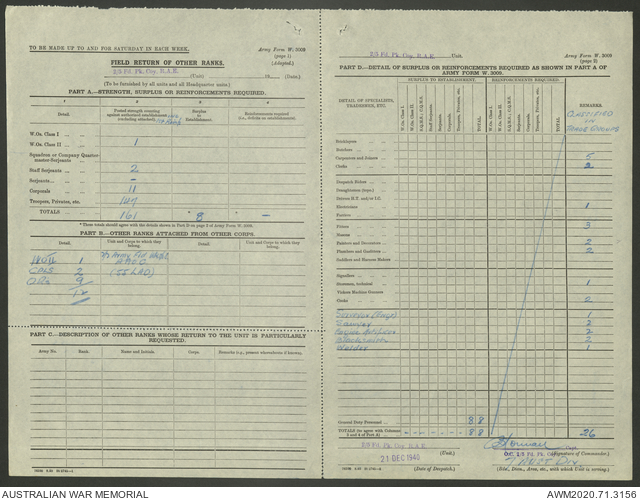 TO BE MADE UP TO AND FOR SATURDAY IN EACH WEEK.
Army Form W. 3009
(page 1)
(Adapted.)
FIELD RETURN OF OTHER RANKS.
2/5 Fd. Pk. Coy. R.A.E. (Unit) 19 (Date.)
(To be furnished by all units and all Headquarter units.)
PART A.—STRENGTH, SURPLUS OR REINFORCEMENTS REQUIRED.
1 2 3 4
Detail. Posted strength counting against authorized establishment (excluding attached). Surplus to Establishment. Reinforcements required (i.e., deficits on establishment).
W.On. Class I
W.On. Class II 1
Squadron or Company Quarter-master-Serjeants
Staff Serjeants 2
Serjeants -
Corporals 11
Troopers, Privates, etc. 147
TOTALS 161 * 8 * -
* These totals should agree with the details shown in Part D on page 2 of Army Form W. 3009.
PART B.—OTHER RANKS ATTACHED FROM OTHER CORPS.
Detail. Unit and Corps to which they belong. Detail. Unit and Corps to which they belong.
1
CPLS 2 (55 LAD)
ORs 9
12
PART C.—DESCRIPTION OF OTHER RANKS WHOSE RETURN TO THE UNIT IS PARTICULARLY REQUESTED.
Army No. Rank. Name and Initials. Corps. Remarks (e.g., present whereabouts if known).
2/5 Fd. Pk. Coy. R.A.E. Unit.
Army Form W. 3009
(page 2)
PART D.—DETAIL OF SURPLUS OR REINFORCEMENTS REQUIRED AS SHOWN IN PART A OF ARMY FORM W. 3009.
SURPLUS TO ESTABLISHMENT. REINFORCEMENTS REQUIRED.
DETAIL OF SPECIALISTS, TRADESMEN, ETC.
W. On. Class I. W. On. Class II. S.Q.M.S.; C.Q.M.S. Staff Serjeants. Serjeants. Corporals. Troopers, Privates, etc. TOTAL.
REMARKS.
CLASSIFIED IN TRADE GROUPS
Bricklayers
Butchers
Carpenters and Joiners 5
Clerks 2
Despatch Riders
Draughtsmen
Drivers
Electricians 1
Farriers
Drivers 3
Nurses
Painters and Decorators 2
Plumbers and Gasfitters 2
Saddlers and Harness Makers
Signallers
Storemen, technical 1
Vickers Machine Gunners
Clerks 2
Surveyor 1
Sawyer 2
2
Blacksmith 2
Welder 1
General Duty Personnel 8 8
TOTALS (to agree with Columns 3 and 4 of Part A) 8 8 26
2/5 Fd. Pk. Coy. R.A.E. (Unit.)
O.C. 2/5 Fd. Pk. Coy. (Signature of Commander.)
21 DEC 1940 (Date of Despatch.)
7 AUST DIV
(Bde., Divn., Area, etc., with which Unit is serving.)
AUSTRALIAN WAR MEMORIAL
AWM2020.71.3156